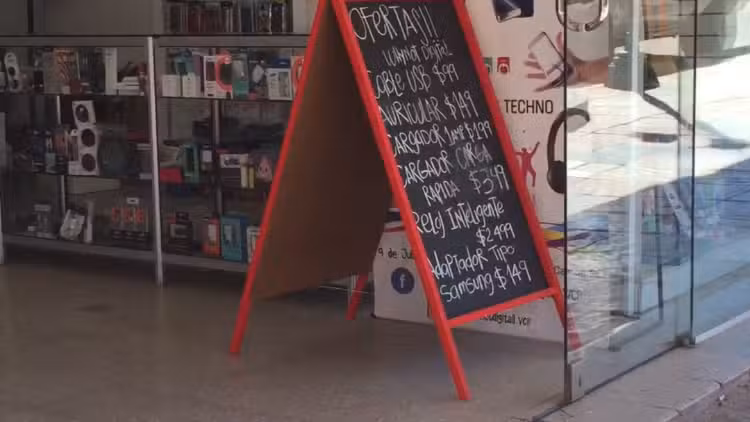 OFERTAS!!!
DIGITAL
CABLE USB $99
AURICULAR $149
CARGADOR $199
CARGADOR CARGA
RAPIDA $349
RELOJ INTELIGENTE
$2499
ADAPTADOR TIPO
SAMSUNG $149
TECHNO
9 de
f